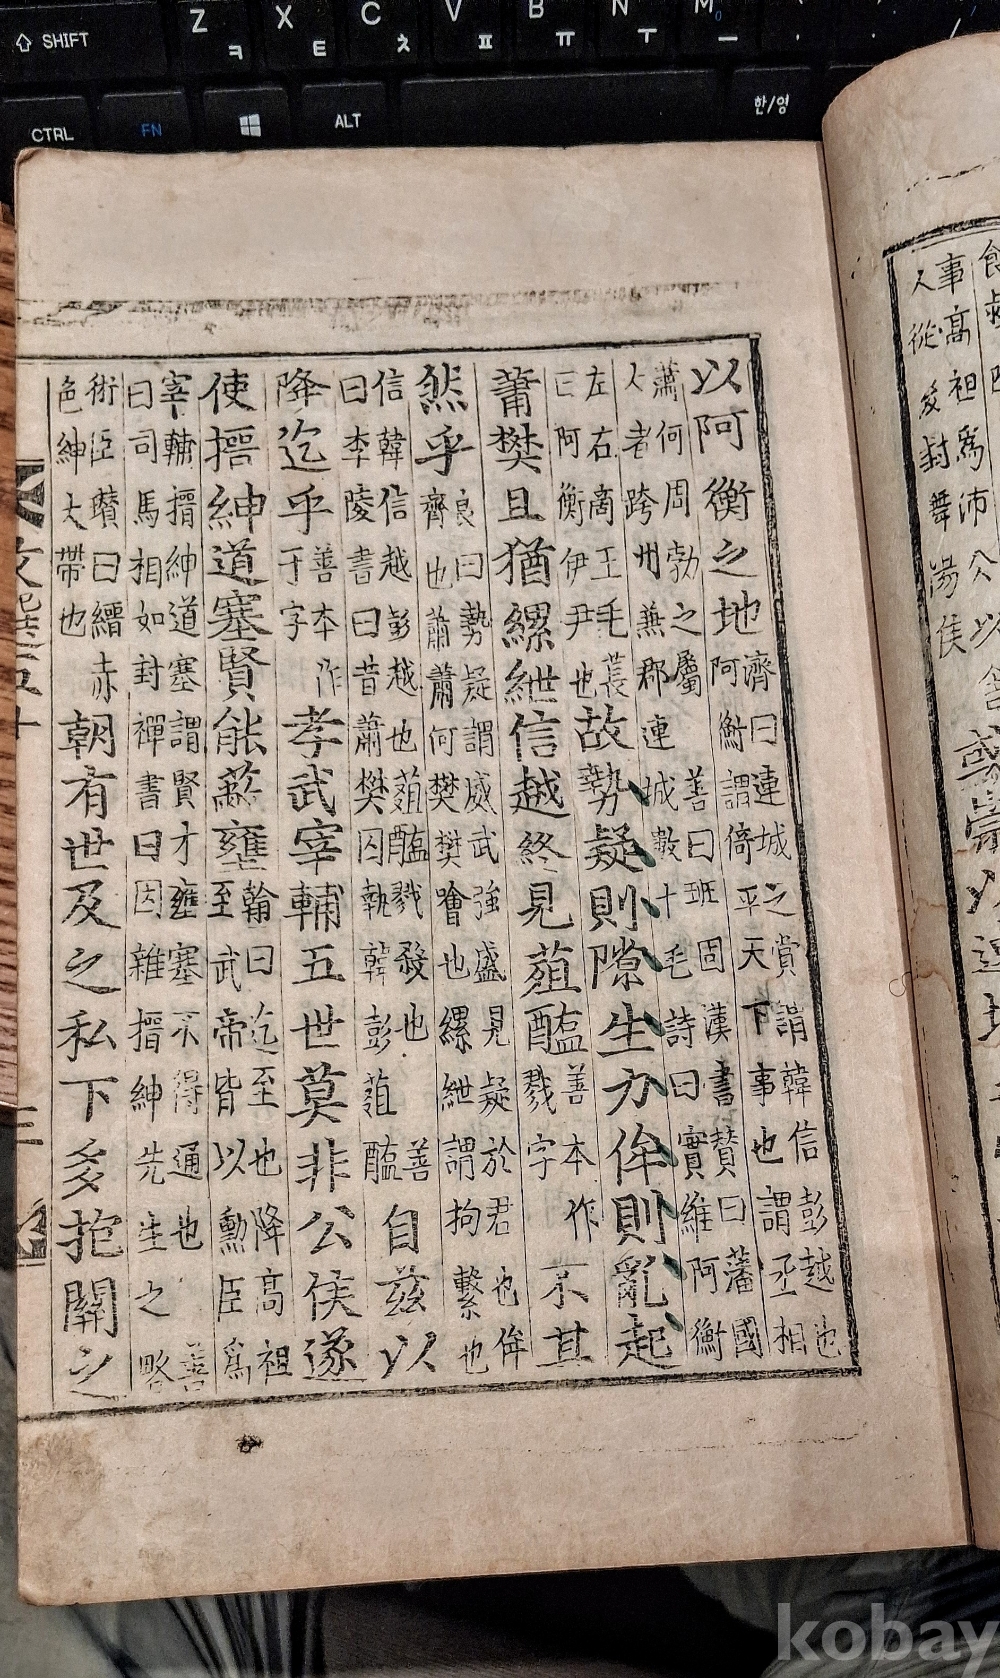 SHIFT
Z ㅋ X ㅌ C ㅊ V ㅍ B ㅠ N ㅜ M ㅡ
CTRL FN ALT 한/영
事高祖爲沛公以舍
人從
封舞陽侯
以阿衡之地
濟曰連城之賞謂韓信彭越也
阿衡謂倚平天下事也謂丞相
蕭何周勃之屬 善曰班固漢書贊曰藩國
人者跨州兼郡連城數十毛詩曰實維阿衡
左右商王毛萇
曰阿衡伊尹也
故勢疑則隙生力侔則亂起
蕭樊且猶縲紲信越終見葅醢
善本作
戮字
不其
然乎
良曰勢疑謂威武強盛見疑於君也侔
齊也蕭蕭何樊樊噲也縲紲謂拘繫也
信韓信越彭越也葅醢戮殺也 善
曰李陵書曰昔蕭樊囚執韓彭葅醢
自茲以
降迄乎
善本作
于字
孝武宰輔五世莫非公侯遂
使搢紳道塞賢能蔽壅
翰曰迄至也降高祖
至武帝皆以勳臣爲
宰輔搢紳道塞謂賢才壅塞不得通也 善
曰司馬相如封禪書曰因雜搢紳先生之略
術臣瓚曰縉赤
色紳大帶也
朝有世及之私下多抱關之
kobay